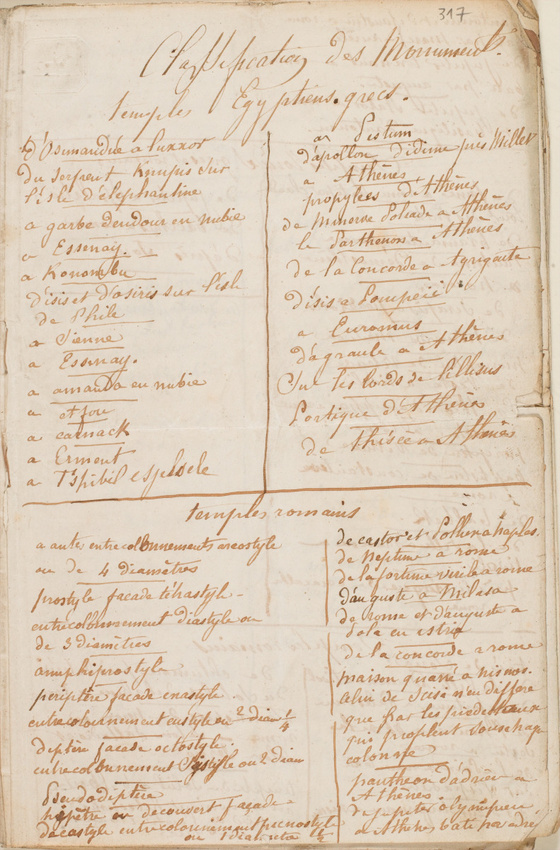 317
Classification des Monuments.
temples Egyptiens. grecs.
d'Osimandué a Luxxor
du serpent Knupis sur
l'isle d'élephantine
a garbe Dendour en nubie
a Essenay.
a Konombu
d'isis et d'osiris sur l'isle
de Phile
a Sienne
a Essenay.
a amanda en nubie
a etfou
a carnack
a Erment
a
a Pestum
d'apollon didime près Millet
a Athènes
propylées d'Athènes
de Minerve Poliade a Athènes
le Parthenon a Athènes
de la Concorde a Agrigente
d'isis a Pompeii
a Euromus
d'agraule a Athènes
Sur les bords de l'illisus
Portique d'Athènes
de thésée a Athènes
temples romains
a antes entrecolonnements areostyle
ou de 4 diamètres
prostyle facade tétrastyle
entrecolonnement diastyle ou
de 3 diamètres
amphiprostyle
periptère facade exastyle
entrecolonnement eustyle ou 2 diam 1/4
diptère facade octostyle.
entrecolonnement Systyle ou 2 diam
Pseudodiptère
hypètre ou decouvert façade
décastyle entrecolonnement picnostyle
ou 1 diametre 1/2
de castor et Pollux a naples.
de Neptune a rome
de la fortune virile a rome
d'auguste a Milasa
de rome et d'auguste a
Pola en istrie
de la concorde a rome
maison quarré a nismes.
celui de Scisi n'en differe
que par les piedestaux
qui profilent sous chaque
colonne
pantheon d'adrien a
Athènes
de jupiter olympien
a Athènes bati par adrien